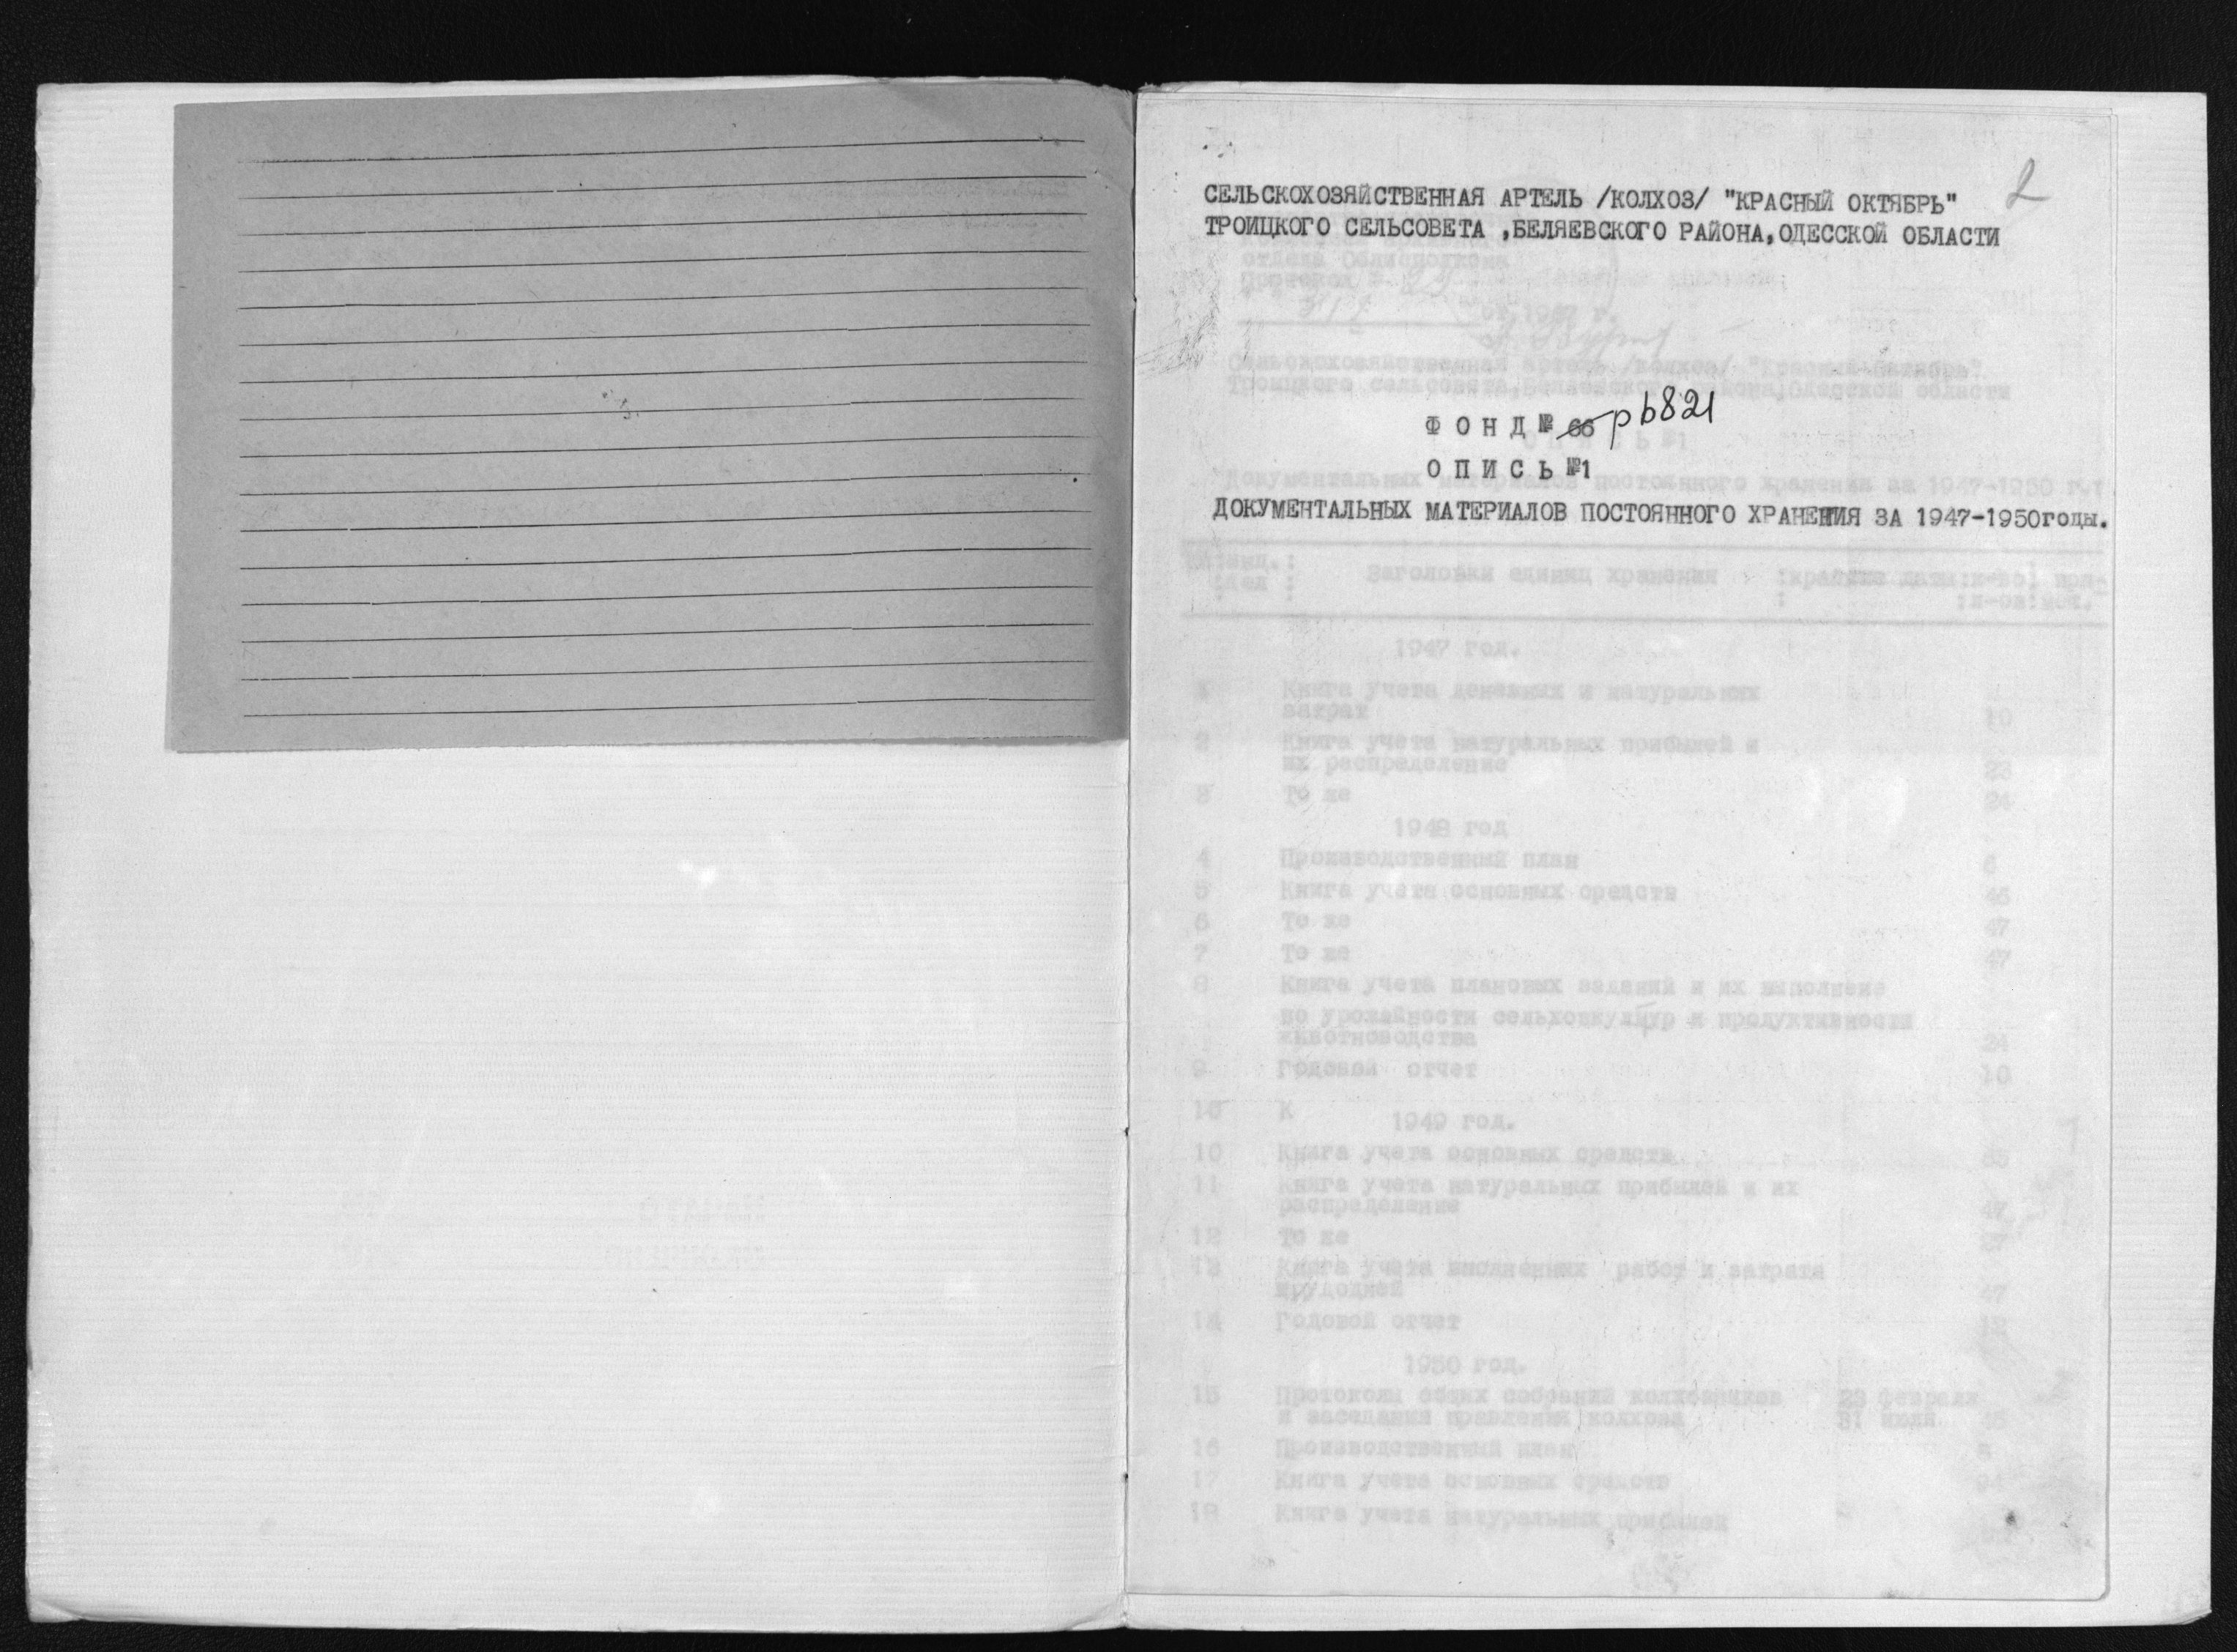 2
СЕЛЬСКОХОЗЯЙСТВЕННАЯ АРТЕЛЬ /КОЛХОЗ/ "КРАСНЫЙ ОКТЯБРЬ"
ТРОИЦКОГО СЕЛЬСОВЕТА ,БЕЛЯЕВСКОГО РАЙОНА,ОДЕССКОЙ ОБЛАСТИ
отдела Облисполкома
Сельскохозяйственная артель /колхоз/ "Красный Октябрь"
Троицкого сельсовета,Беляевского района,Одесской области
Ф О Н Д № 66 р6821
О П И С Ь №1
Документальных материалов постоянного хранения за 1947-1950 г.г
ДОКУМЕНТАЛЬНЫХ МАТЕРИАЛОВ ПОСТОЯННОГО ХРАНЕНИЯ ЗА 1947-1950годы.
Заголовки единиц хранения :крайние даты:к-во:
1947 год.
1 Книга учета денежных и натуральных
затрат 10
2 Книга учета натуральных прибылей и
их распределение 23
3 То же 24
1948 год
4 Производственный план 6
5 Книга учета основных средств 46
6 То же 47
7 То же 47
8 Книга учета плановых заданий и их
по урожайности сельхозкультур и продуктивности
животноводства 24
9 Годовой отчет 10
10 К
1949 год.
10 Книга учета основных средств
11 Книга учета натуральных прибылей и их
распределение 47
12 То же
13 Книга учета работ и затрата
трудодней 47
14 Годовой отчет 12
1950 год.
15 Протоколы общих собраний колхозников 23 февраля
и заседаний правления колхоза 31 июля
16 Производственный план
17 Книга учета основных средств
18 Книга учета натуральных прибылей